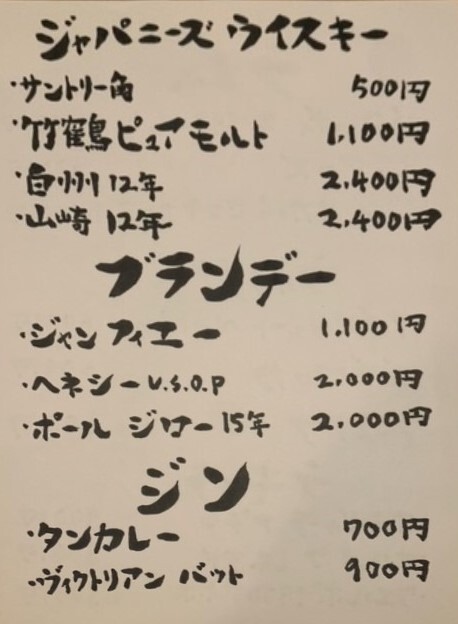 ジャパニーズ ウイスキー
・サントリー角 500円
・竹鶴ピュアモルト 1,100円
・白州12年 2,400円
・山崎 12年 2,400円
ブランデー
・ジャン フィエー 1,100円
・ヘネシーV.S.O.P 2,000円
・ポール ジロー15年 2,000円
ジン
・タンカレー 700円
・ヴィクトリアン バット 900円